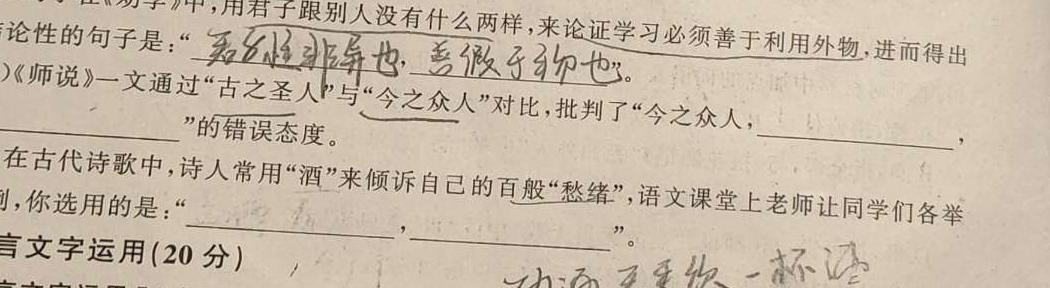 中,用君子跟别人没有什么两样,来论证学习必须善于利用外物,进而得出
论性的句子是:“君子性非异也,善假于物也”。
)《师说》一文通过“古之圣人”与“今之众人”对比,批判了“今之众人,
”的错误态度。
在古代诗歌中,诗人常用“酒”来倾诉自己的百般“愁绪”,语文课堂上老师让同学们各举
,你选用的是:“ , ”。
言文字运用(20 分)
一杯酒